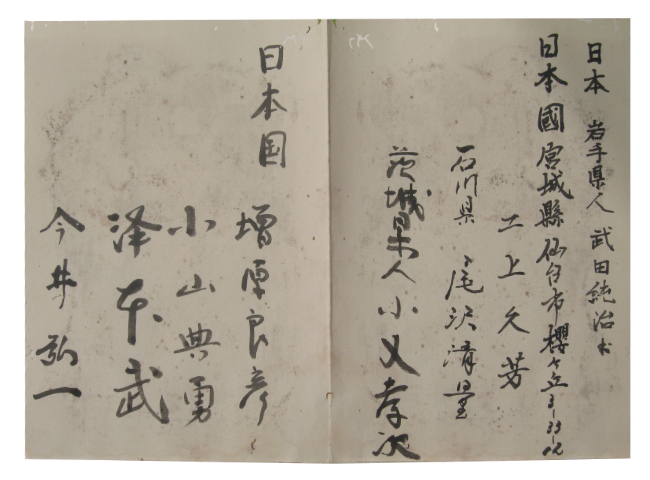 日本 岩手県人 武田純治
日本國宮城縣仙台市櫻ヶ丘3-33-12
二上久芳
石川県 尾沢清量
茨城県人 小又孝次
日本国 増原良彦
小山典勇
澤本武
今井弘一